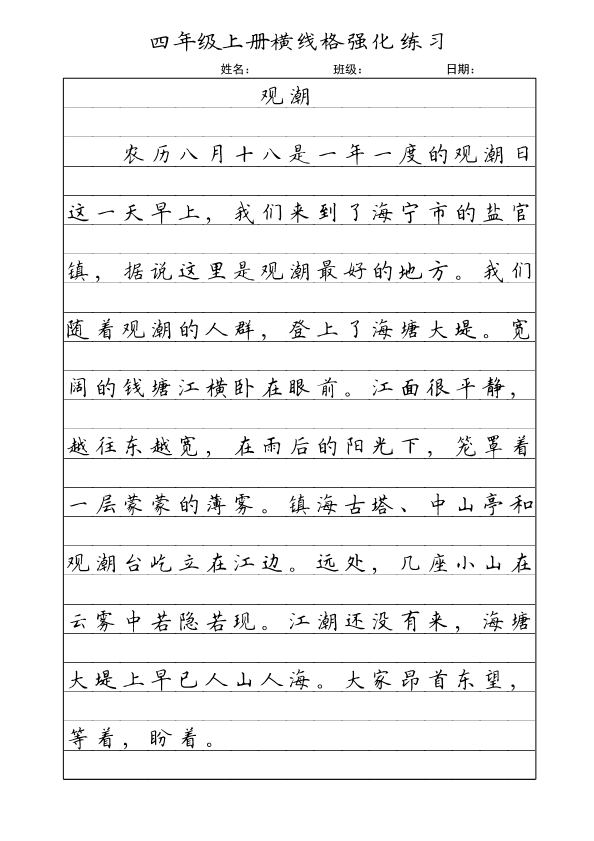 四年级上册横线格强化练习
姓名： 班级： 日期：
观潮
农历八月十八是一年一度的观潮日
这一天早上，我们来到了海宁市的盐官
镇，据说这里是观潮最好的地方。我们
随着观潮的人群，登上了海塘大堤。宽
阔的钱塘江横卧在眼前。江面很平静，
越往东越宽，在雨后的阳光下，笼罩着
一层蒙蒙的薄雾。镇海古塔、中山亭和
观潮台屹立在江边。远处，几座小山在
云雾中若隐若现。江潮还没有来，海塘
大堤上早已人山人海。大家昂首东望，
等着，盼着。